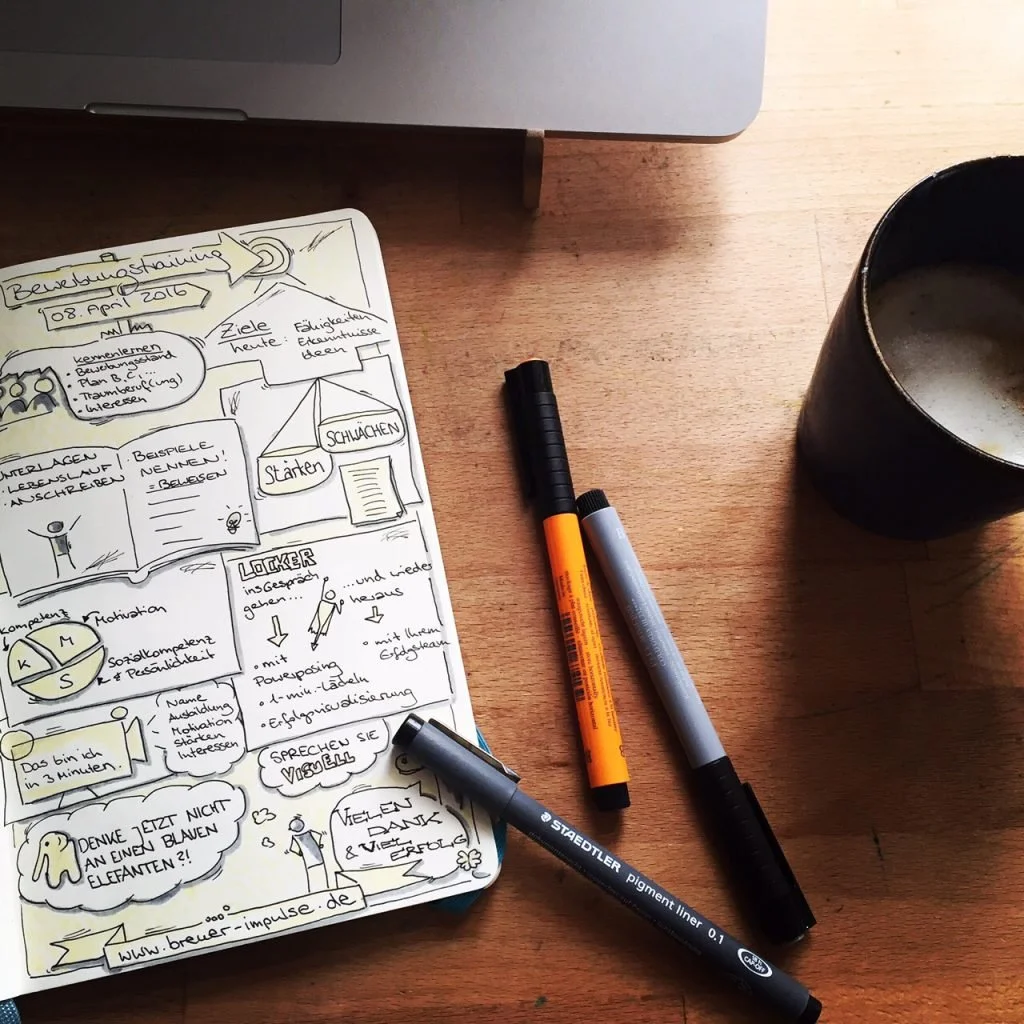 Bewerbungstraining
08. April 2016
Kennenlernen
• Bewerbungsstand
• Plan B, C, ...
• Traumberuf(ung)
• Interessen
Ziele
heute: Fähigkeiten
Erkenntnisse
Ideen
UNTERLAGEN
• LEBENSLAUF
• ANSCHREIBEN
BEISPIELE
NENNEN!
= BEWEISEN
Stärken
SCHWÄCHEN
Kompetenz
Motivation
K M
S
Sozialkompetenz
& Persönlichkeit
LOCKER
ins Gespräch
gehen...
...und wieder
heraus
• mit
Powerposing
• 1-min.-Lächeln
• Erfolgsvisualisierung
• mit Ihrem
Erfolgsteam
Das bin ich
in 3 Minuten.
Name
Ausbildung
Motivation
Stärken
Interessen
SPRECHEN SIE
VISUELL
DENKE JETZT NICHT
AN EINEN BLAUEN
ELEFANTEN?!
VIELEN
DANK
& VIEL
ERFOLG
www.breuer-impulse.de
STAEDTLER pigment liner 0.1
CAP-OFF